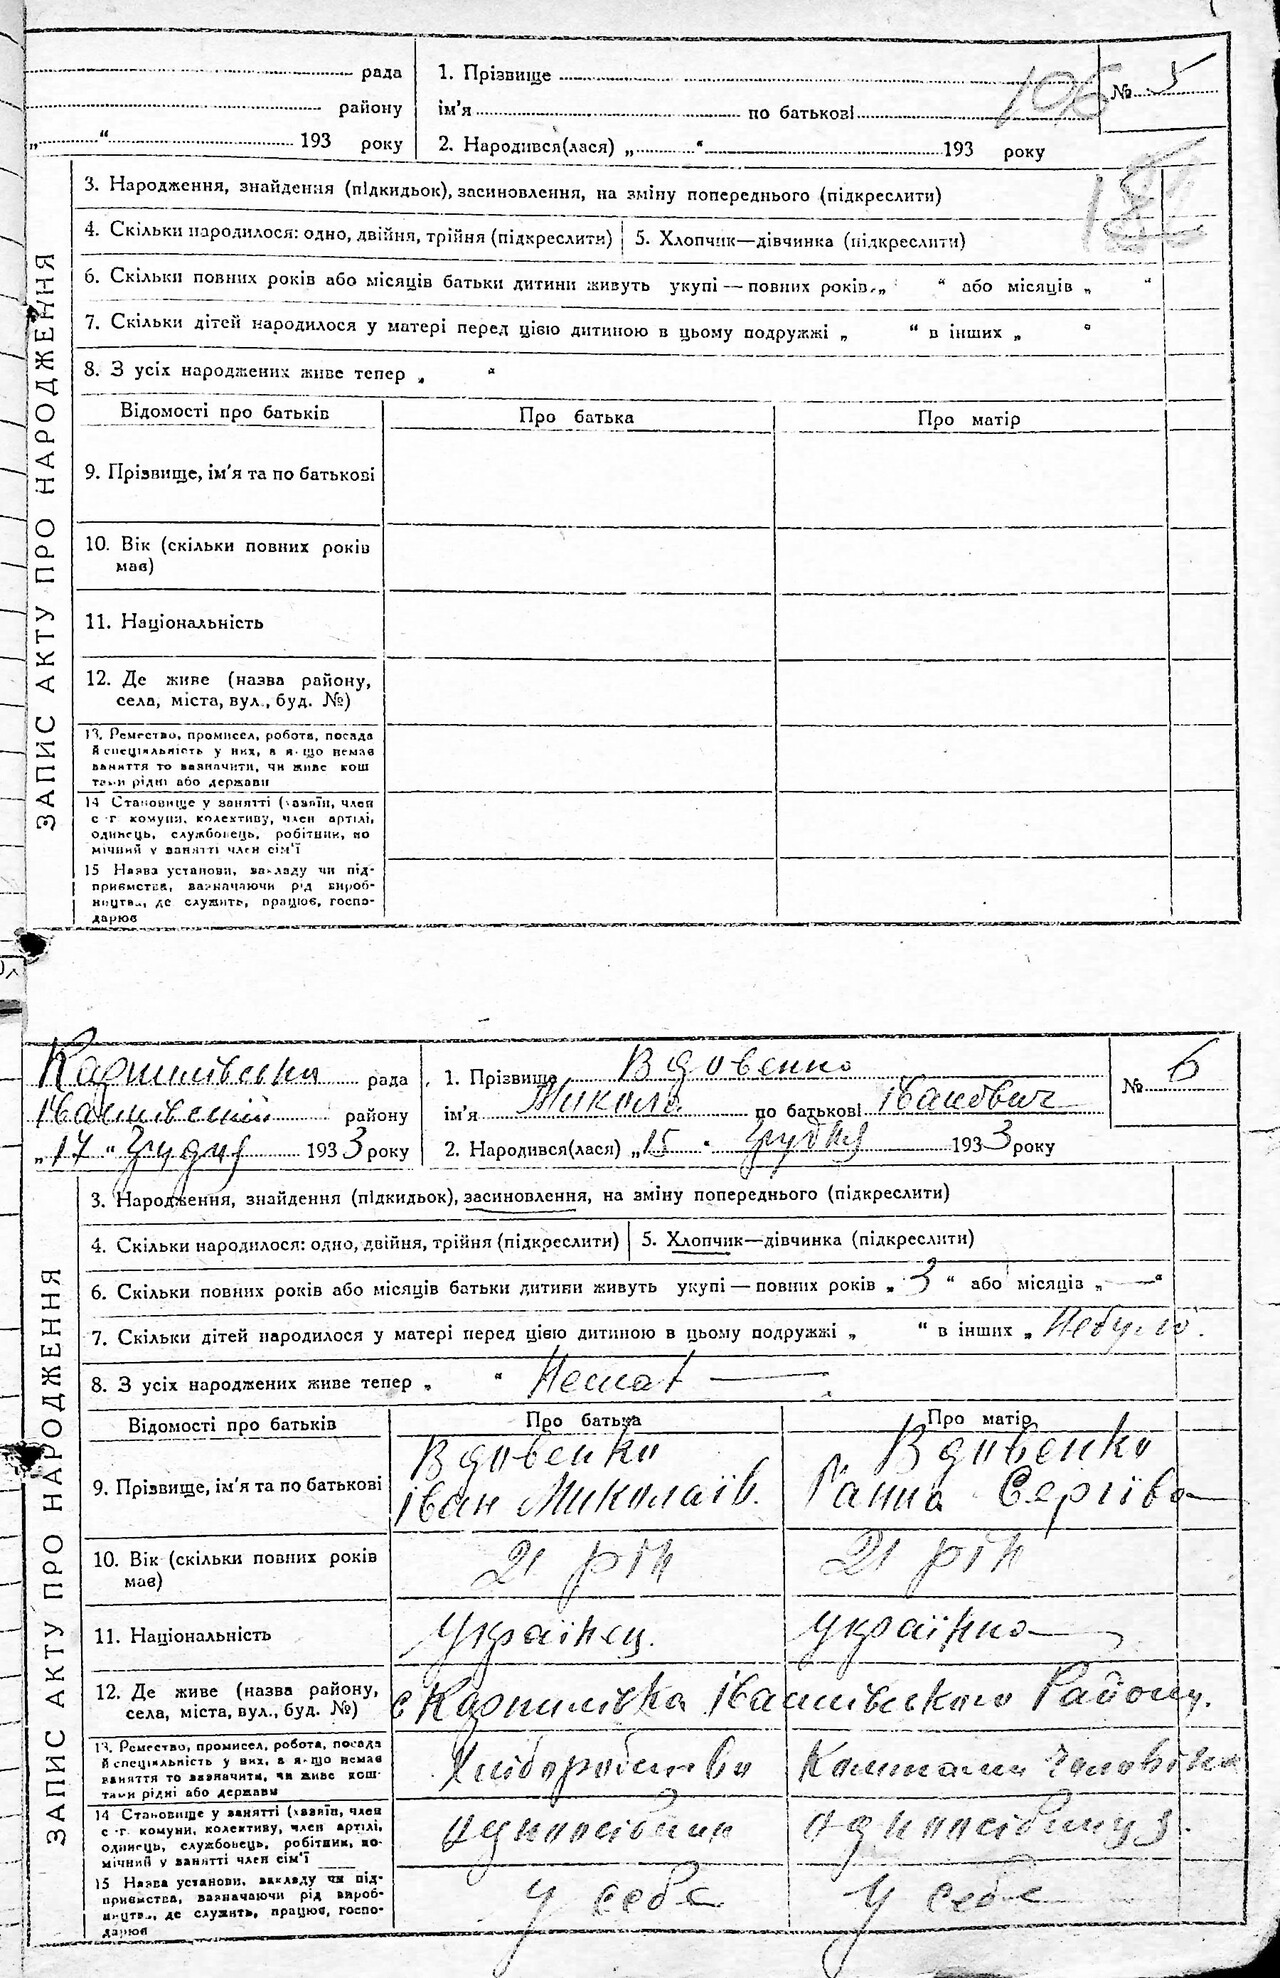 рада
району
„ “ 193 року
1. Прізвище
ім'я по батькові
2. Народився(лася) „ “ 193 року
106
№ 5
ЗАПИС АКТУ ПРО НАРОДЖЕННЯ
3. Народження, знайдення (підкидьок), засиновлення, на зміну попереднього (підкреслити)
4. Скільки народилося: одно, двійня, трійня (підкреслити) 5. Хлопчик—дівчинка (підкреслити)
6. Скільки повних років або місяців батьки дитини живуть укупі — повних років „ “ або місяців „ “
7. Скільки дітей народилося у матері перед цією дитиною в цьому подружжі „ “ в інших „ “
8. З усіх народжених живе тепер „ “
Відомості про батьків Про батька Про матір
9. Прізвище, ім'я та по батькові
10. Вік (скільки повних років
має)
11. Національність
12. Де живе (назва району,
села, міста, вул., буд. №)
13. Ремество, промисел, робота, посада
й спеціяльність у них, а якщо немає
заняття то зазначити, чи живе кош
тами рідні або держави
14 Становище у занятті (хазяїн, член
с.-г. комуни, колективу, член артілі,
одинець, службовець, робітник, по
мічний у занятті член сім'ї
15 Назва установи, закладу чи під-
приємства, зазначаючи рід вироб-
ництва, де служить, працює, госпо-
дарює
Карпилівська рада
Іванківський району
„17 “ Грудня 1933 року
1. Прізвище Вдовенко
ім'я Микола по батькові Іванович
2. Народився(лася) „15 “ Грудня 1933 року
№ 6
ЗАПИС АКТУ ПРО НАРОДЖЕННЯ
3. Народження, знайдення (підкидьок), засиновлення, на зміну попереднього (підкреслити)
4. Скільки народилося: одно, двійня, трійня (підкреслити) 5. Хлопчик—дівчинка (підкреслити)
6. Скільки повних років або місяців батьки дитини живуть укупі — повних років „ 3 “ або місяців „—“
7. Скільки дітей народилося у матері перед цією дитиною в цьому подружжі „ “ в інших „ Небуло
8. З усіх народжених живе тепер „ “ Немає —
Відомості про батьків Про батька Про матір
9. Прізвище, ім'я та по батькові
Вдовенко Вдовенко
Іван Миколаїв. Ганна Сергіївa
10. Вік (скільки повних років
має)
21 рік 21 рік
11. Національність Українец. Українка
12. Де живе (назва району,
села, міста, вул., буд. №)
с Карпилівка Іванківського Району.
13. Ремество, промисел, робота, посада
й спеціяльність у них, а якщо немає
заняття то зазначити, чи живе кош-
тами рідні або держави
Хліборобство Коштами Чоловіка
14 Становище у занятті (хазяїн, член
с.-г. комуни, колективу, член артілі,
одинець, службовець, робітник, по-
мічний у занятті член сім'ї
одноосібник одноосібниця.
15 Назва установи, закладу чи під-
приємства, зазначаючи рід вироб-
ництва, де служить, працює, госпо-
дарює
у себе у себе